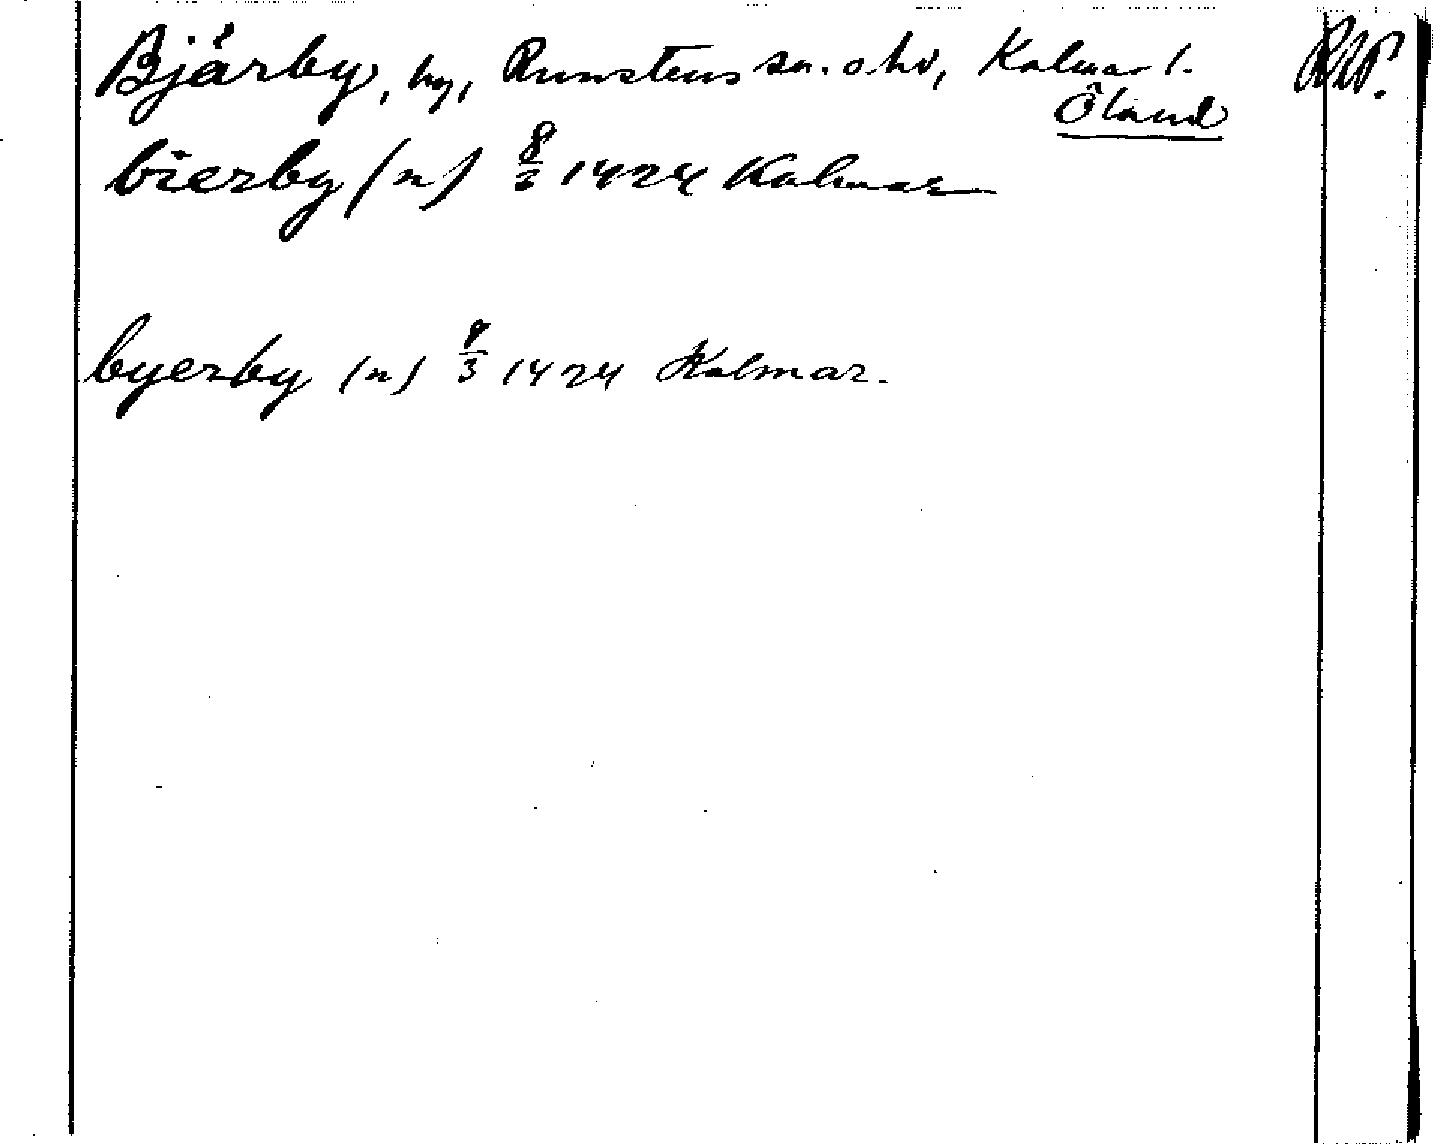 Bjärby, by, Runstens sn. o. hd, Kalmar l. RAP.
Öland
bierby (n) 8/2 1424 Kalmar
byerby (n) 9/3 1424 Kalmar.